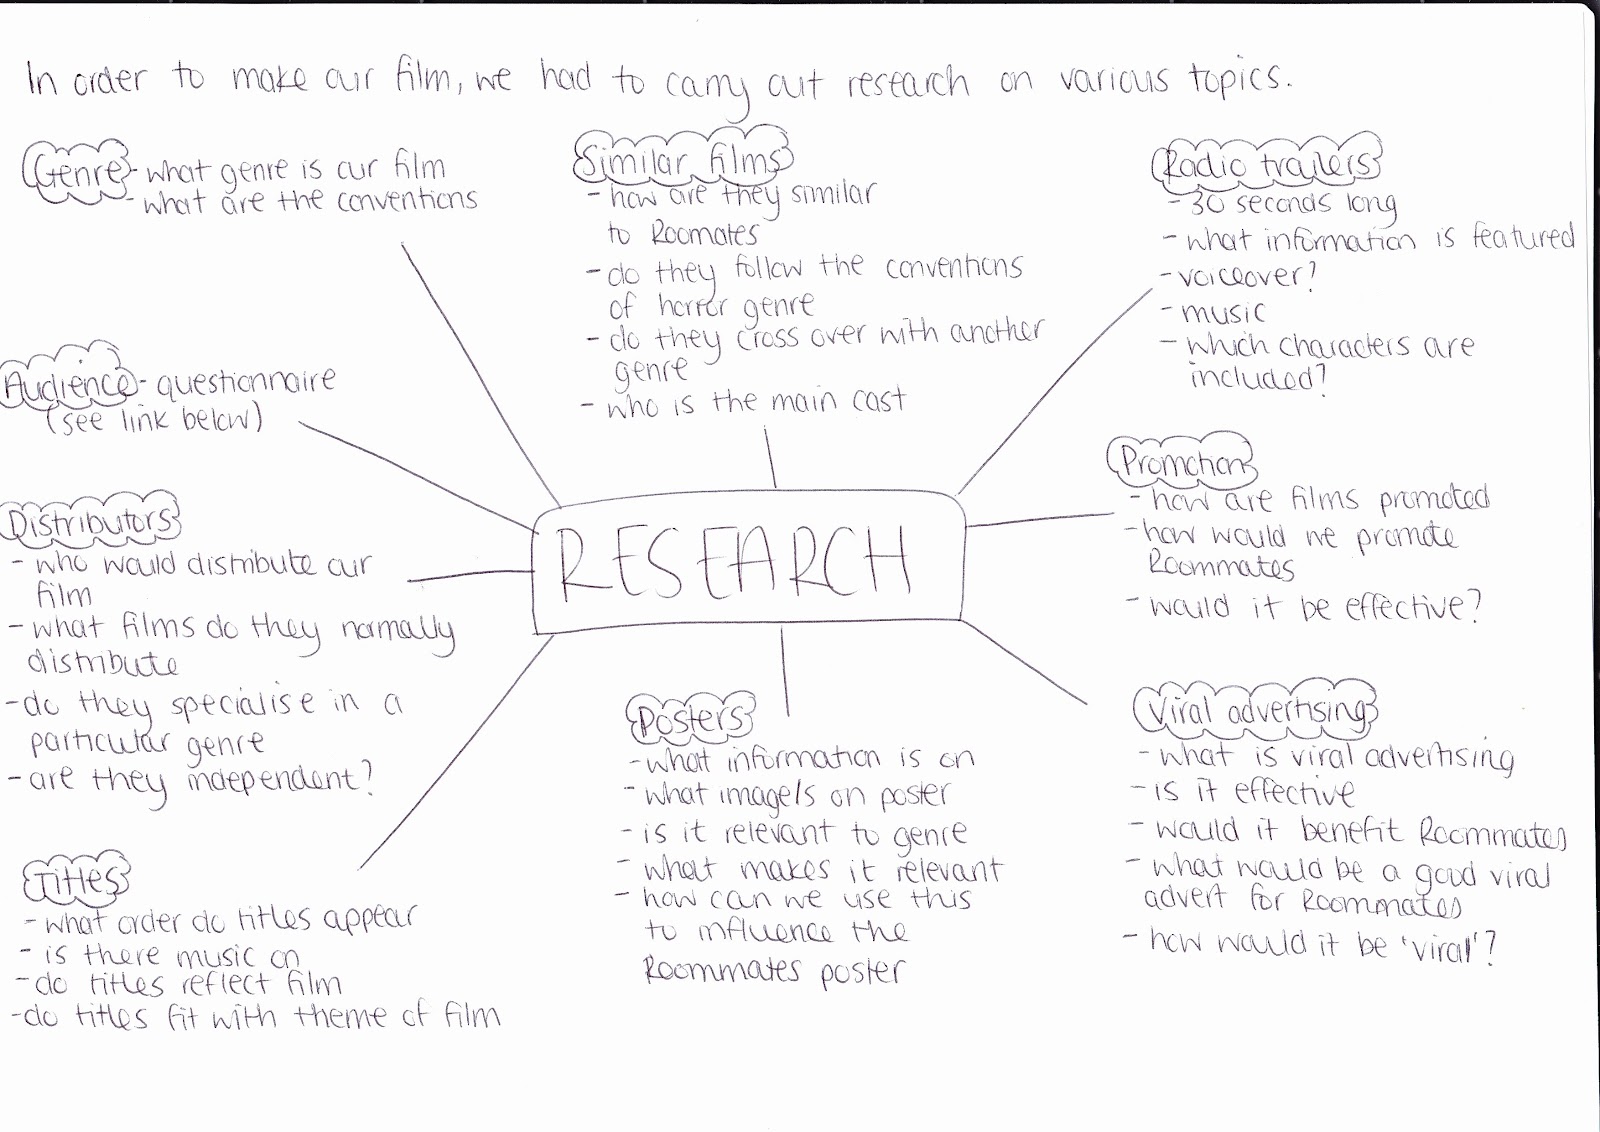 In order to make our film, we had to carry out research on various topics.
Genre - what genre is our film
- what are the conventions
Similar films
- how are they similar
to Roomates
- do they follow the conventions
of horror genre
- do they cross over with another
genre
- who is the main cast
Radio trailers
- 30 seconds long
- what information is featured
- voiceover?
- music
- which characters are
included?
Audience - questionnaire
(see link below)
Promotion
- how are films promoted
- how would we promote
Roommates
- would it be effective?
Distributors
- who would distribute our
film
- what films do they normally
distribute
- do they specialise in a
particular genre
- are they independent?
RESEARCH
Posters
- what information is on
- what image/s on poster
- is it relevant to genre
- what makes it relevant
- how can we use this
to influence the
Roommates poster
Viral advertising
- what is viral advertising
- is it effective
- would it benefit Roommates
- what would be a good viral
advert for Roommates
- how would it be 'viral'?
Titles
- what order do titles appear
- is there music on
- do titles reflect film
- do titles fit with theme of film